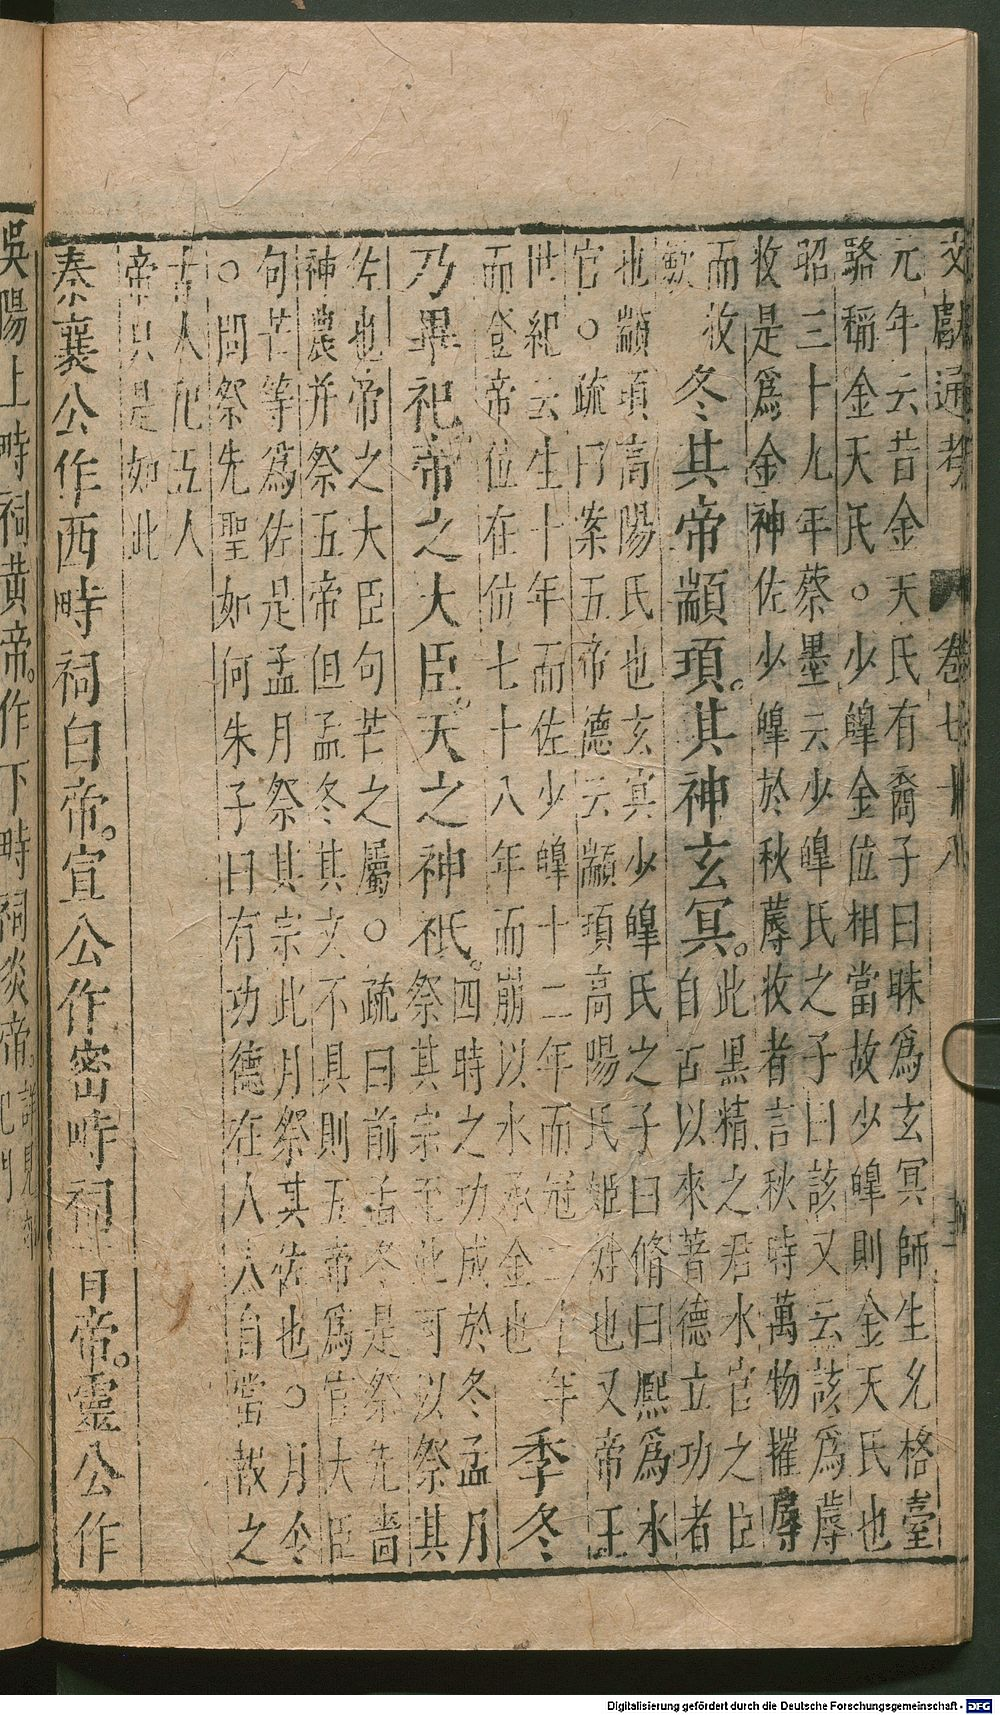 文獻通考 卷七十八
元年云昔金天氏有裔子曰昧爲玄冥師生允格臺
駱稱金天氏○少皥金位相當故少皥則金天氏也
昭三十九年蔡墨云少皥氏之子曰該又云該爲蓐
收是爲金神佐少皥於秋蓐收者言秋時萬物摧蓐
而收
歟
冬其帝顓頊。其神玄冥。
此黑精之君水官之臣
自古以來著德立功者
也顓頊高陽氏也玄冥少皥氏之子曰脩曰熙爲水
官○疏曰案五帝德云顓頊高陽氏姬姓也又帝王
世紀云生十年而佐少皥十二年而冠二十年
而登帝位在位七十八年而崩以水承金也
季冬
乃畢祀帝之大臣。天之神祇。
四時之功成於冬孟月
祭其宗至此可以祭其
佐也帝之大臣句芒之屬○疏曰前孟冬是祭先嗇
神農并祭五帝但孟冬其文不具則五帝爲官大臣
句芒等爲佐是孟月祭其宗此月祭其佐也○月令
○問祭先聖如何朱子曰有功德在人人自當報之
古人祀五人
帝只是如此
秦襄公作西畤祠白帝。宣公作密畤祠青帝。靈公作
吳陽上畤祠黃帝。作下畤祠炎帝。
詳見郊
祀門
Digitalisierung gefördert durch die Deutsche Forschungsgemeinschaft - DFG